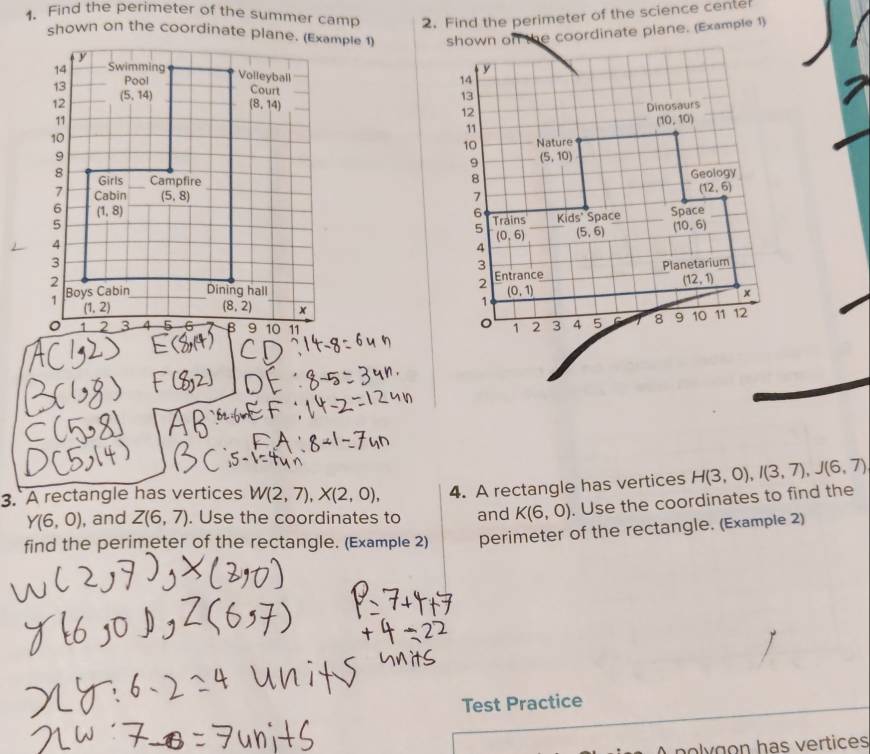 1. Find the perimeter of the summer camp
shown on the coordinate plane. (Example 1)
y
14
13
12
11
10
9
8
7
6
5
4
3
2
1
O
1 2 3 4 5 6 7 8 9 10 11
x
Swimming
Pool
(5, 14)
Volleyball
Court
(8, 14)
Girls
Cabin
(1, 8)
Campfire
(5, 8)
Boys Cabin
(1, 2)
Dining hall
(8, 2)
A(1,2)
B(1,8)
C(5,8)
D(5,14)
E(8,14)
F(8,2)
CD: 14-8=6un
DE: 8-5=3un.
EF: 14-2=12un
FA: 8-1=7un
BC: 5-1=4un
2. Find the perimeter of the science center
shown on the coordinate plane. (Example 1)
y
14
13
12
11
10
9
8
7
6
5
4
3
2
1
O
1 2 3 4 5 6 7 8 9 10 11 12
x
Dinosaurs
(10, 10)
Nature
(5, 10)
Geology
(12, 6)
Trains
(0, 6)
Kids' Space
(5, 6)
Space
(10, 6)
Entrance
(0, 1)
Planetarium
(12, 1)
3. A rectangle has vertices W(2, 7), X(2, 0),
Y(6, 0), and Z(6, 7). Use the coordinates to
find the perimeter of the rectangle. (Example 2)
W(2,7), X(2,0)
y(6,0), Z(6,7)
P=7+4+7
+4=22
units
xy: 6-2=4 units
xw: 7-0=7units
4. A rectangle has vertices H(3, 0), I(3, 7), J(6, 7),
and K(6, 0). Use the coordinates to find the
perimeter of the rectangle. (Example 2)
Test Practice
A polygon has vertices